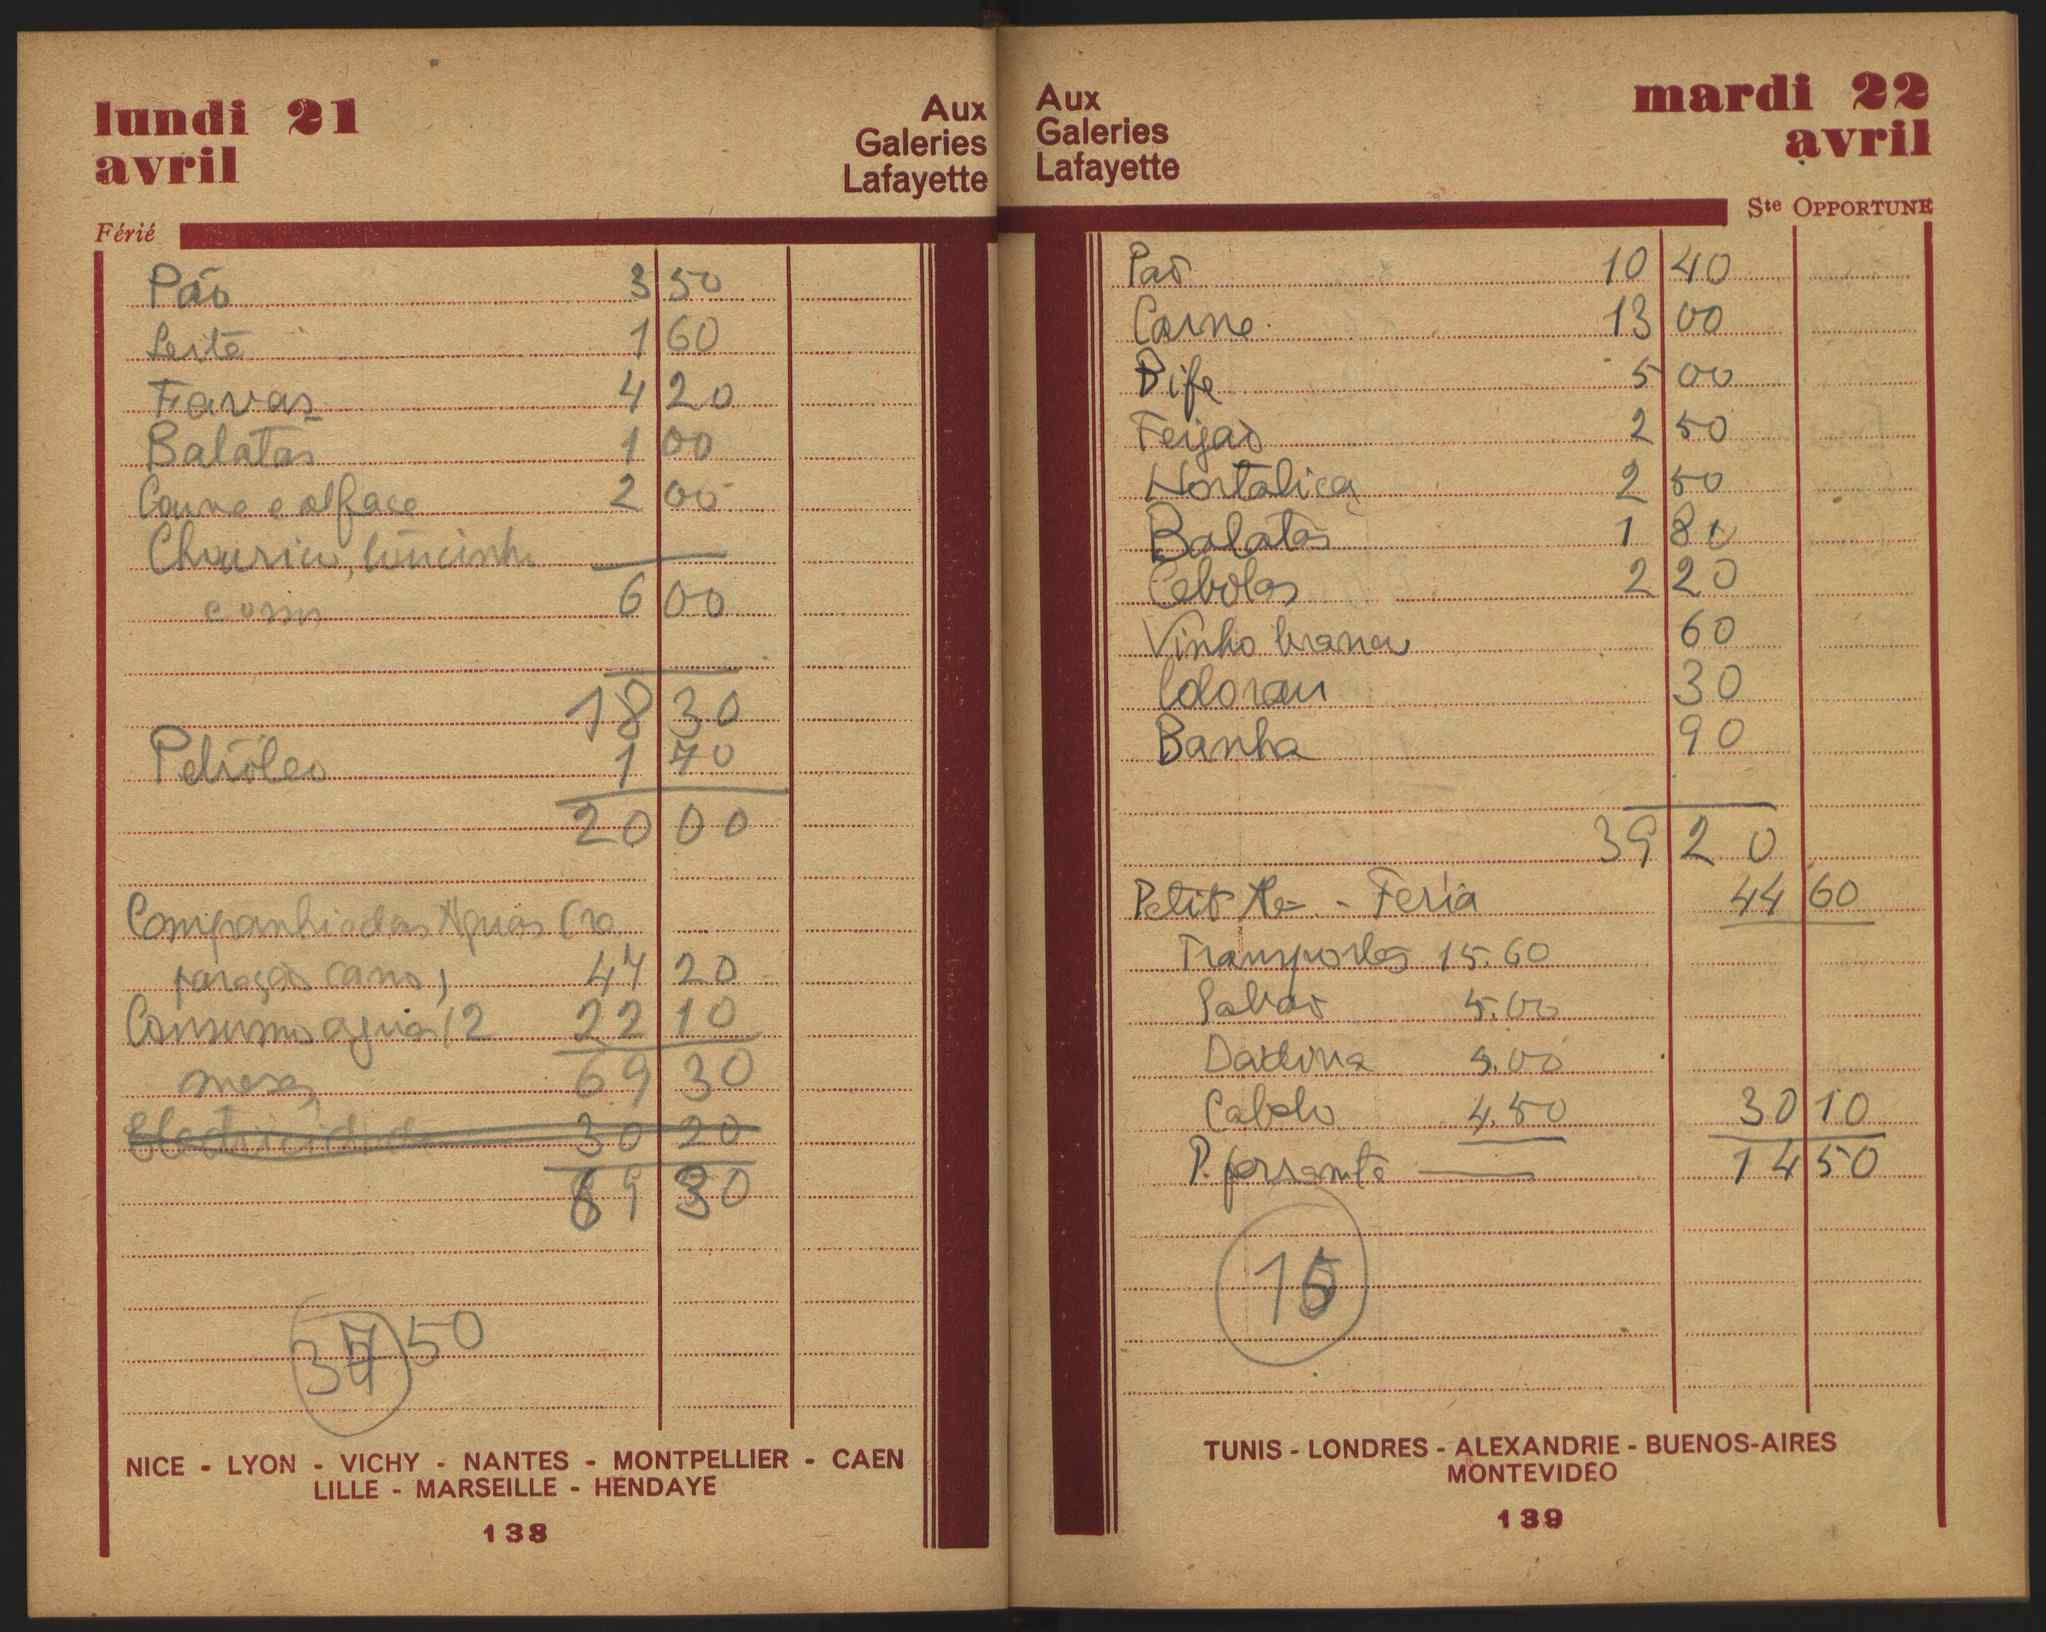 lundi 21
avril
Aux
Galeries
Lafayette
Férié
Pão 3 50
Leite 1 60
Favas 4 20
Batatas 1 00
Couve e alface 2 00
Chouriço, toucinho
6 00
18 30
Petróleo 1 70
20 00
Companhia das Aguas (re
paração cano) 47 20
Consumo agua (2 22 10
meses 69 30
Electricidade 30 20
69 30
37 50
NICE - LYON - VICHY - NANTES - MONTPELLIER - CAEN
LILLE - MARSEILLE - HENDAYE
138
Aux
Galeries
Lafayette
mardi 22
avril
Ste OPPORTUNE
Pão 10 40
Carne 13 00
Bife 5 00
Feijão 2 50
Hortaliça 2 50
Batatas 1 80
Cebolas 2 20
Vinho branco 60
Colorau 30
Banha 90
39 20
Petit - Feria 44 60
Transportes 15.60
Sabão 5.00
5.00
Cabelo 4.50 30 10
P. fersente 14 50
15
TUNIS - LONDRES - ALEXANDRIE - BUENOS-AIRES
MONTEVIDEO
139